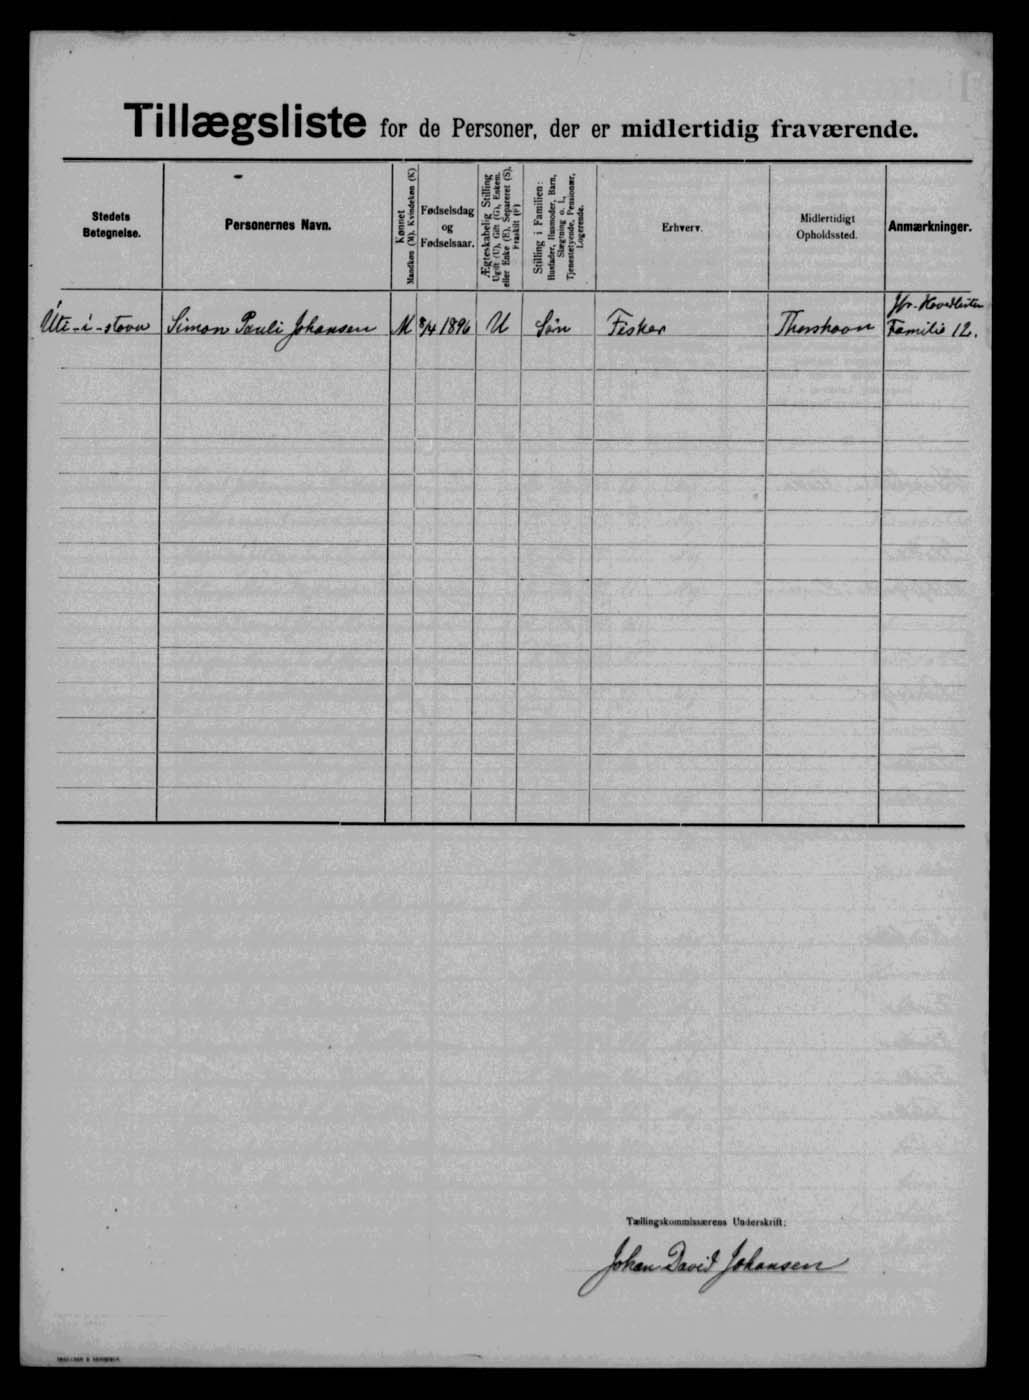 Tillægsliste for de Personer, der er midlertidig fraværende.
Stedets Betegnelse.
Personernes Navn.
Kønnet
Mandkøn (M), Kvindekøn (K)
Fødselsdag
og
Fødselsaar.
Ægteskabelig Stilling
Ugift (U), Gift (G), Enkem.
eller Enke (E), Separeret (S),
Fraskilt (F)
Stilling i Familien:
Husfader, Husmoder, Barn,
Slægtning o. l.,
Tjenestetyende, Pensionær,
Logerende.
Erhverv.
Midlertidigt
Opholdssted.
Anmærkninger.
Úti-i-stovu Simon Pauli Johansen M 8/4 1896 U Søn Fisker Thorshavn Jfr. Hovedlisten
Familie 12.
Tællingskommissærens Underskrift:
Johan David Johansen